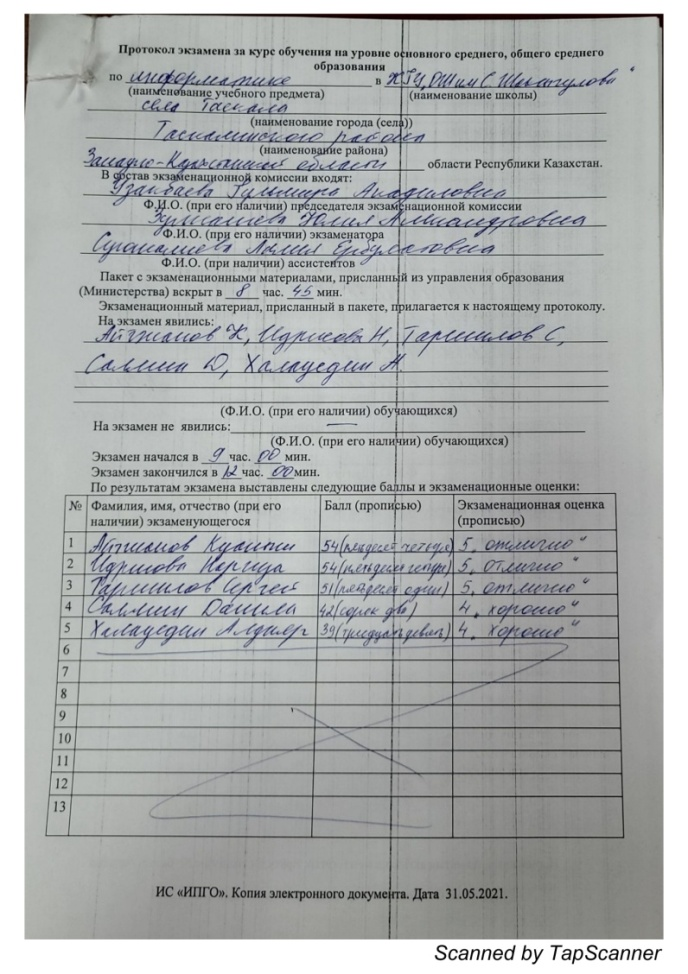 Протокол экзамена за курс обучения на уровне основного среднего, общего среднего
образования
по информатике в КГУ „ОШ им С. Шакшгулова“
(наименование учебного предмета) (наименование школы)
села Таскала
(наименование города (села))
Таскалинского района
(наименование района)
Западно-Казахстанской области области Республики Казахстан.
В состав экзаменационной комиссии входят:
Узакбаева Гульмира Акадиловна
Ф.И.О. (при его наличии) председателя экзаменационной комиссии
Юлия Александровна
Ф.И.О. (при его наличии) экзаменатора
Ерболатовна
Ф.И.О. (при наличии) ассистентов
Пакет с экзаменационными материалами, присланный из управления образования
(Министерства) вскрыт в 8 час. 45 мин.
Экзаменационный материал, присланный в пакете, прилагается к настоящему протоколу.
На экзамен явились:
К, Идрисова Н, С,
Д, А.
(Ф.И.О. (при его наличии) обучающихся)
На экзамен не явились: —
(Ф.И.О. (при его наличии) обучающихся)
Экзамен начался в 9 час. 00 мин.
Экзамен закончился в 12 час. 00 мин.
По результатам экзамена выставлены следующие баллы и экзаменационные оценки:
№ Фамилия, имя, отчество (при его наличии) экзаменующегося Балл (прописью) Экзаменационная оценка (прописью)
1 54 (пятьдесят четыре) 5 „отлично“
2 Идрисова 54 (пятьдесят четыре) 5 „отлично“
3 Сергей 51 (пятьдесят один) 5 „отлично“
4 Данила 42 (сорок два) 4 „хорошо“
5 39 (тридцать девять) 4 „хорошо“
6
7
8
9
10
11
12
13
ИС «ИПГО». Копия электронного документа. Дата 31.05.2021.
Scanned by TapScanner